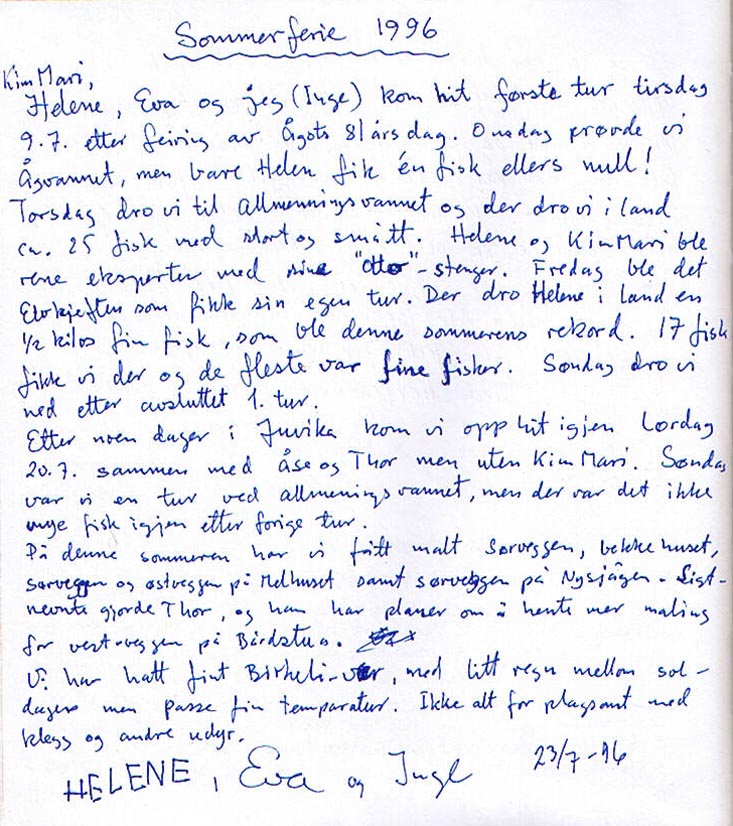 Sommerferie 1996
Kim Mari,
Helene, Eva og jeg (Inge) kom hit første tur tirsdag
9.7. etter feiring av Ågots 81 årsdag. Onsdag prøvde vi
Ågvannet, men bare Helen fik én fisk ellers null!
Torsdag dro vi til Allmenningsvannet og der dro vi i land
ca. 25 fisk med stort og smått. Helene og Kim Mari ble
rene eksperter med sine "Otto"-stenger. Fredag ble det
Elvkjeften som fikk sin egen tur. Der dro Helene i land en
1/2 kilos fin fisk, som ble denne sommerens rekord. 17 fisk
fikk vi der og de fleste var fine fisker. Søndag dro vi
ned etter avsluttet 1. tur.
Etter noen dager i Juvika kom vi opp hit igjen Lørdag
20.7. sammen med Åse og Thor men uten Kim Mari. Søndag
var vi en tur ved allmenningsvannet, men der var det ikke
mye fisk igjen etter forige tur.
På denne sommeren har vi fått malt sørveggen, bekkehuset,
sørveggen og østveggen på Melhuset samt sørveggen på Nysjågen. Sist-
nevnte gjorde Thor, og han har planer om å hente mer maling
for vest-veggen på Bårdstua.
Vi har hatt fint Birkeli-vær, med litt regn mellom sol-
dager men passe fin temperatur. Ikke alt for plagsomt med
klegg og andre udyr.
HELENE, Eva og Inge 23/7-96